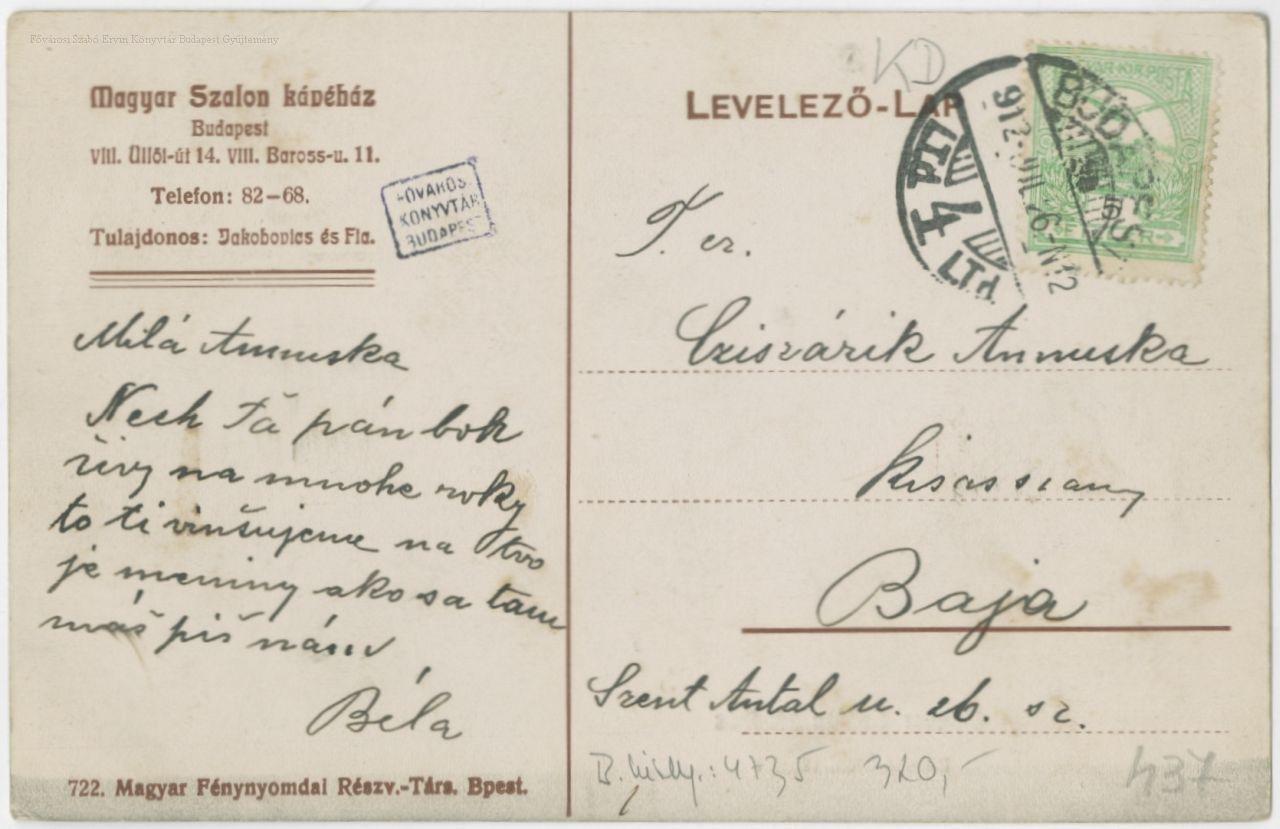 Fővárosi Szabó Ervin Könyvtár Budapest Gyűjtemény
Magyar Szalon kávéház
Budapest
VIII. Üllői-út 14. VIII. Baross-u. 11.
Telefon: 82-68.
Tulajdonos: Jakobovics és Fia.
FŐVÁROSI
KÖNYVTÁR
BUDAPEST
Milá Annuska
Nech Tă pán boh
živy na mnohe roky
to ti vinšujeme na tvo
je meniny ako sa tam
máš piš nám
Béla
722. Magyar Fénynyomdai Részv.-Társ. Bpest.
KD
LEVELEZŐ-LAP
MAGYAR KIR. POSTA
BUDAPEST
912
4
T. cz.
Cziszárik Annuska
kisasszony
Baja
Szent Antal u. 26. sz.
4735 320,-
437